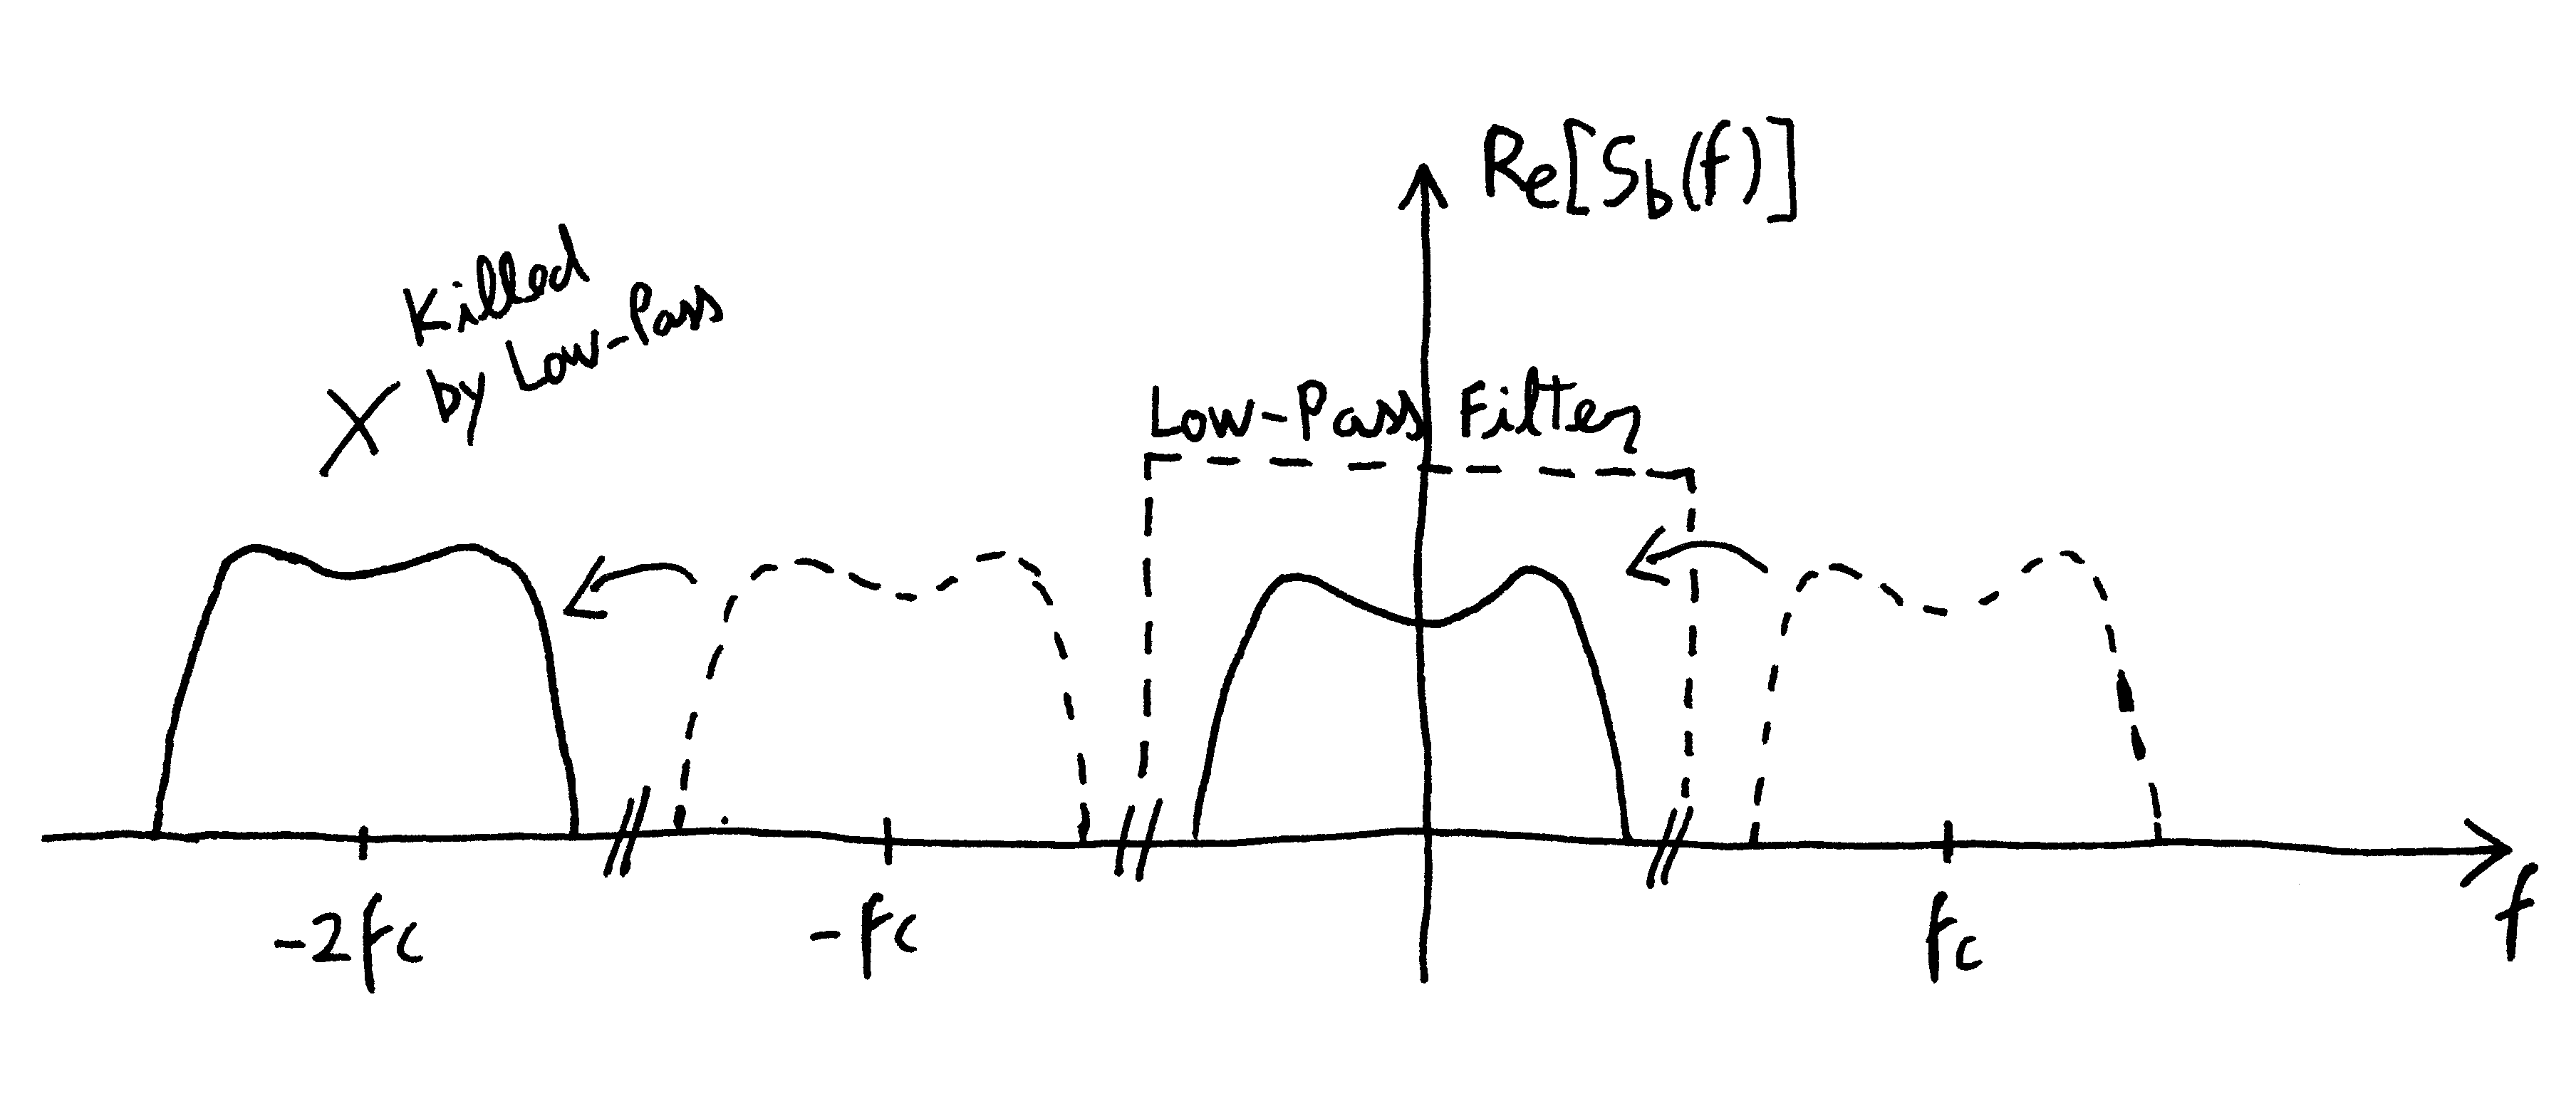 Re[Sb(f)]
Killed
by Low-Pass
Low-Pass Filter
-2fc
-fc
fc
f